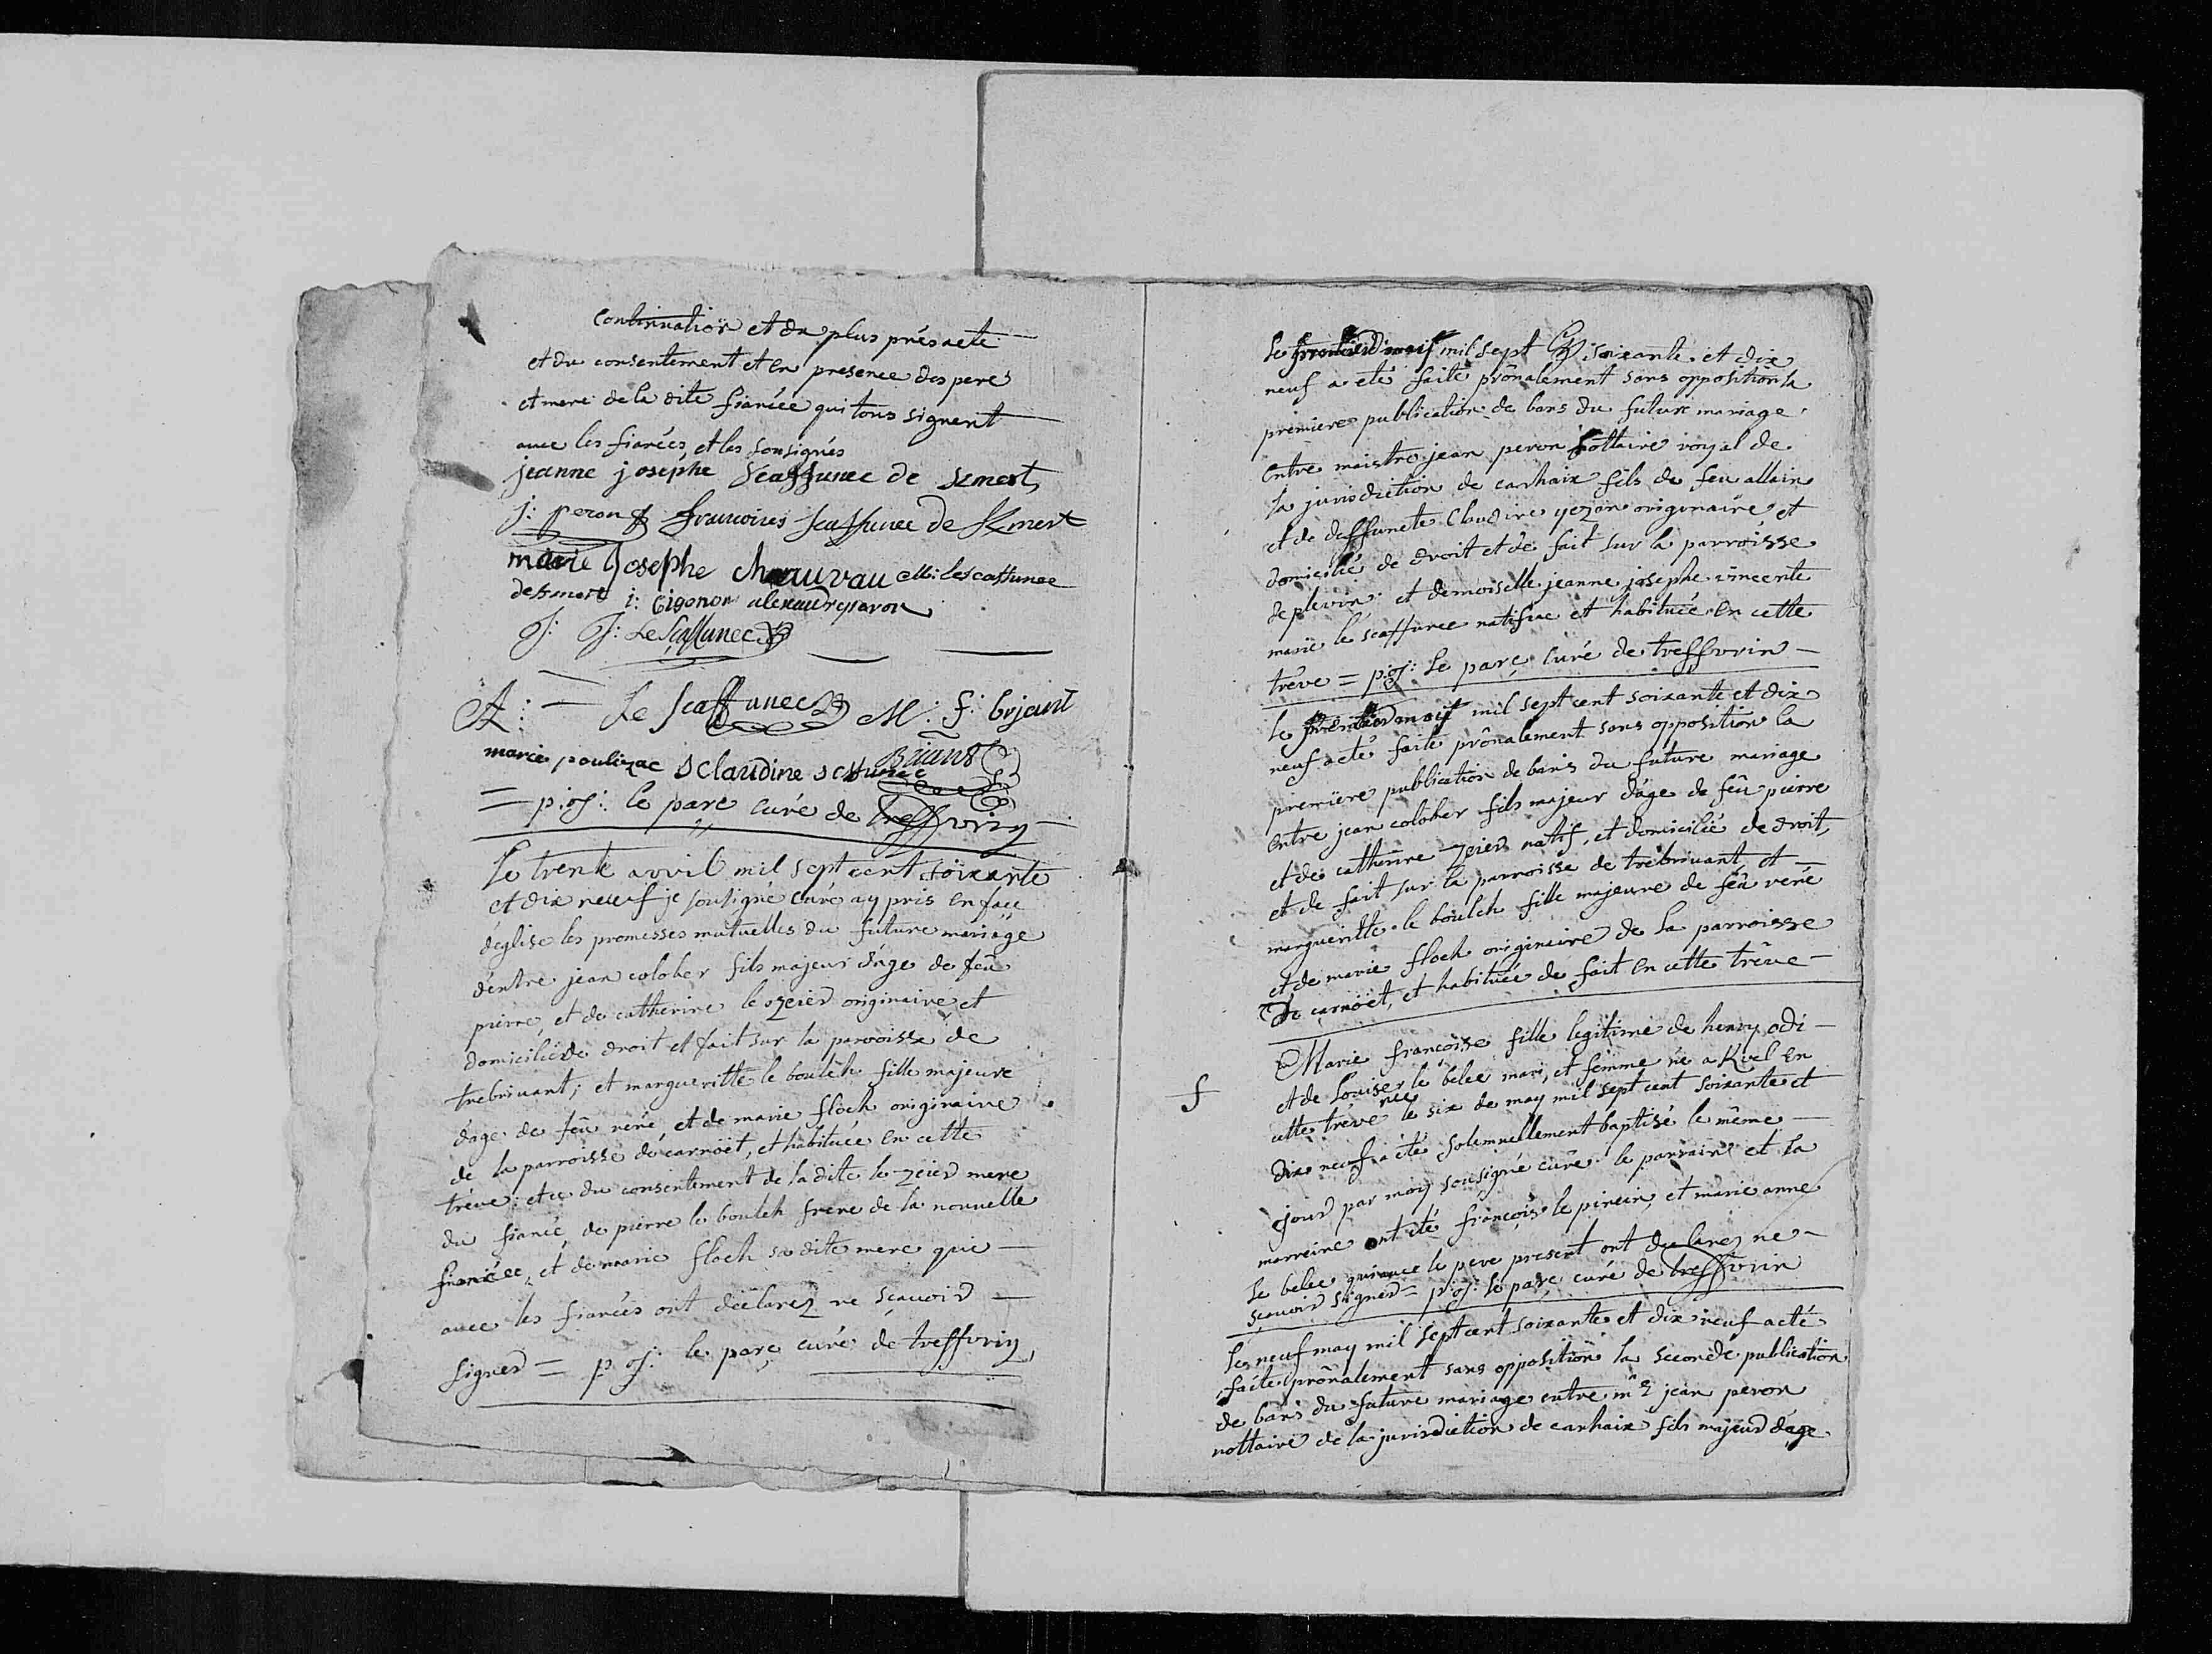 continuation et du plus prés acte
et du consentement et en presence des pere
et mere de la dite fiancée qui tous signent
avec les fiancées, et les sousignés
jeanne josephe Scaffunec de
j: peron françoises Scaffunec de
marie josephe chauvau
j: gigonon alexandre peron
J: J: Le Scaffunec
A: = Le Scaffunec M: f: brjant
Briant
marie poulizac claudine
= p: j: le parc curé de treffvrin
Le trente avvil mil sept cent soixante
et dix neuf je sousigné curé ay pris en face
déglise les promesses mutuelles du future mariage
d'entre jean coloher fils majeur d'age de feû
pierre, et de catherine le zeier originaire et
domicilié de droit et fait sur la parroisse de
trebrivant; et margueritte le boulch fille majeure
d'age de feû réné, et de marie floch originaire
de la parroisse de carnöet, et habituée en cette
tréve; et ce du consentement de la dite le zeier mere
du fiancé, de pierre le boulch frere de la nouvelle
fiancée, et de marie floch sa dite mere qui
avec les fiancés ont déclarez ne sçavoir
signer = p: j: le parc curé de treffvrin,
Le mil sept cent soixante et dix
neuf a eté faite prônalement sans opposition la
premiere publication de bans du future mariage
entre maistre jean peron nottaire royal de
la jurisdiction de carhaix fils de feu allain
et de deffuncte Claudine yezon originaire et
domicilié de droit et de fait sur la parroisse
de plevin; et demoiselle jeanne josephe vincente
marie le scaffunec natifve et habituée en cette
tréve = p: j: le parc curé de treffvrin
Le mil sept cent soixante et dix
neuf a eté faite prônalement sans opposition la
premiere publication de bans du future mariage
entre jean coloher fils majeur d'age de feû pierre
et de catherine zeier natif, et domicilié de droit,
et de fait sur la parroisse de trébrivant, et
margueritte le boulch fille majeure de feû réné
et de marie floch originaire de la parroisse
de carnoët, et habituée de fait en cette trêve
Marie françoise fille legitime de henry odi
et de louise le belec mari, et femme née a Kvel en
f
cette tréve née le six de may mil sept cent soixante et
dix neuf a été solemnellement baptisé le même
jour par moy sousigné curé. le parrain et la
marreine ont été françois le pinein, et marie anne
le belec qui avec le pere present ont declarez ne
sçavoir signer = p: j: le parc curé de treffvrin
Le neuf may mil sept cent soixante et dix neuf a cté
faite prônalement sans opposition la seconde publication
de bans du future mariage entre me jean peron
nottaire de la jurisdiction de carhaix fils majeur d'age